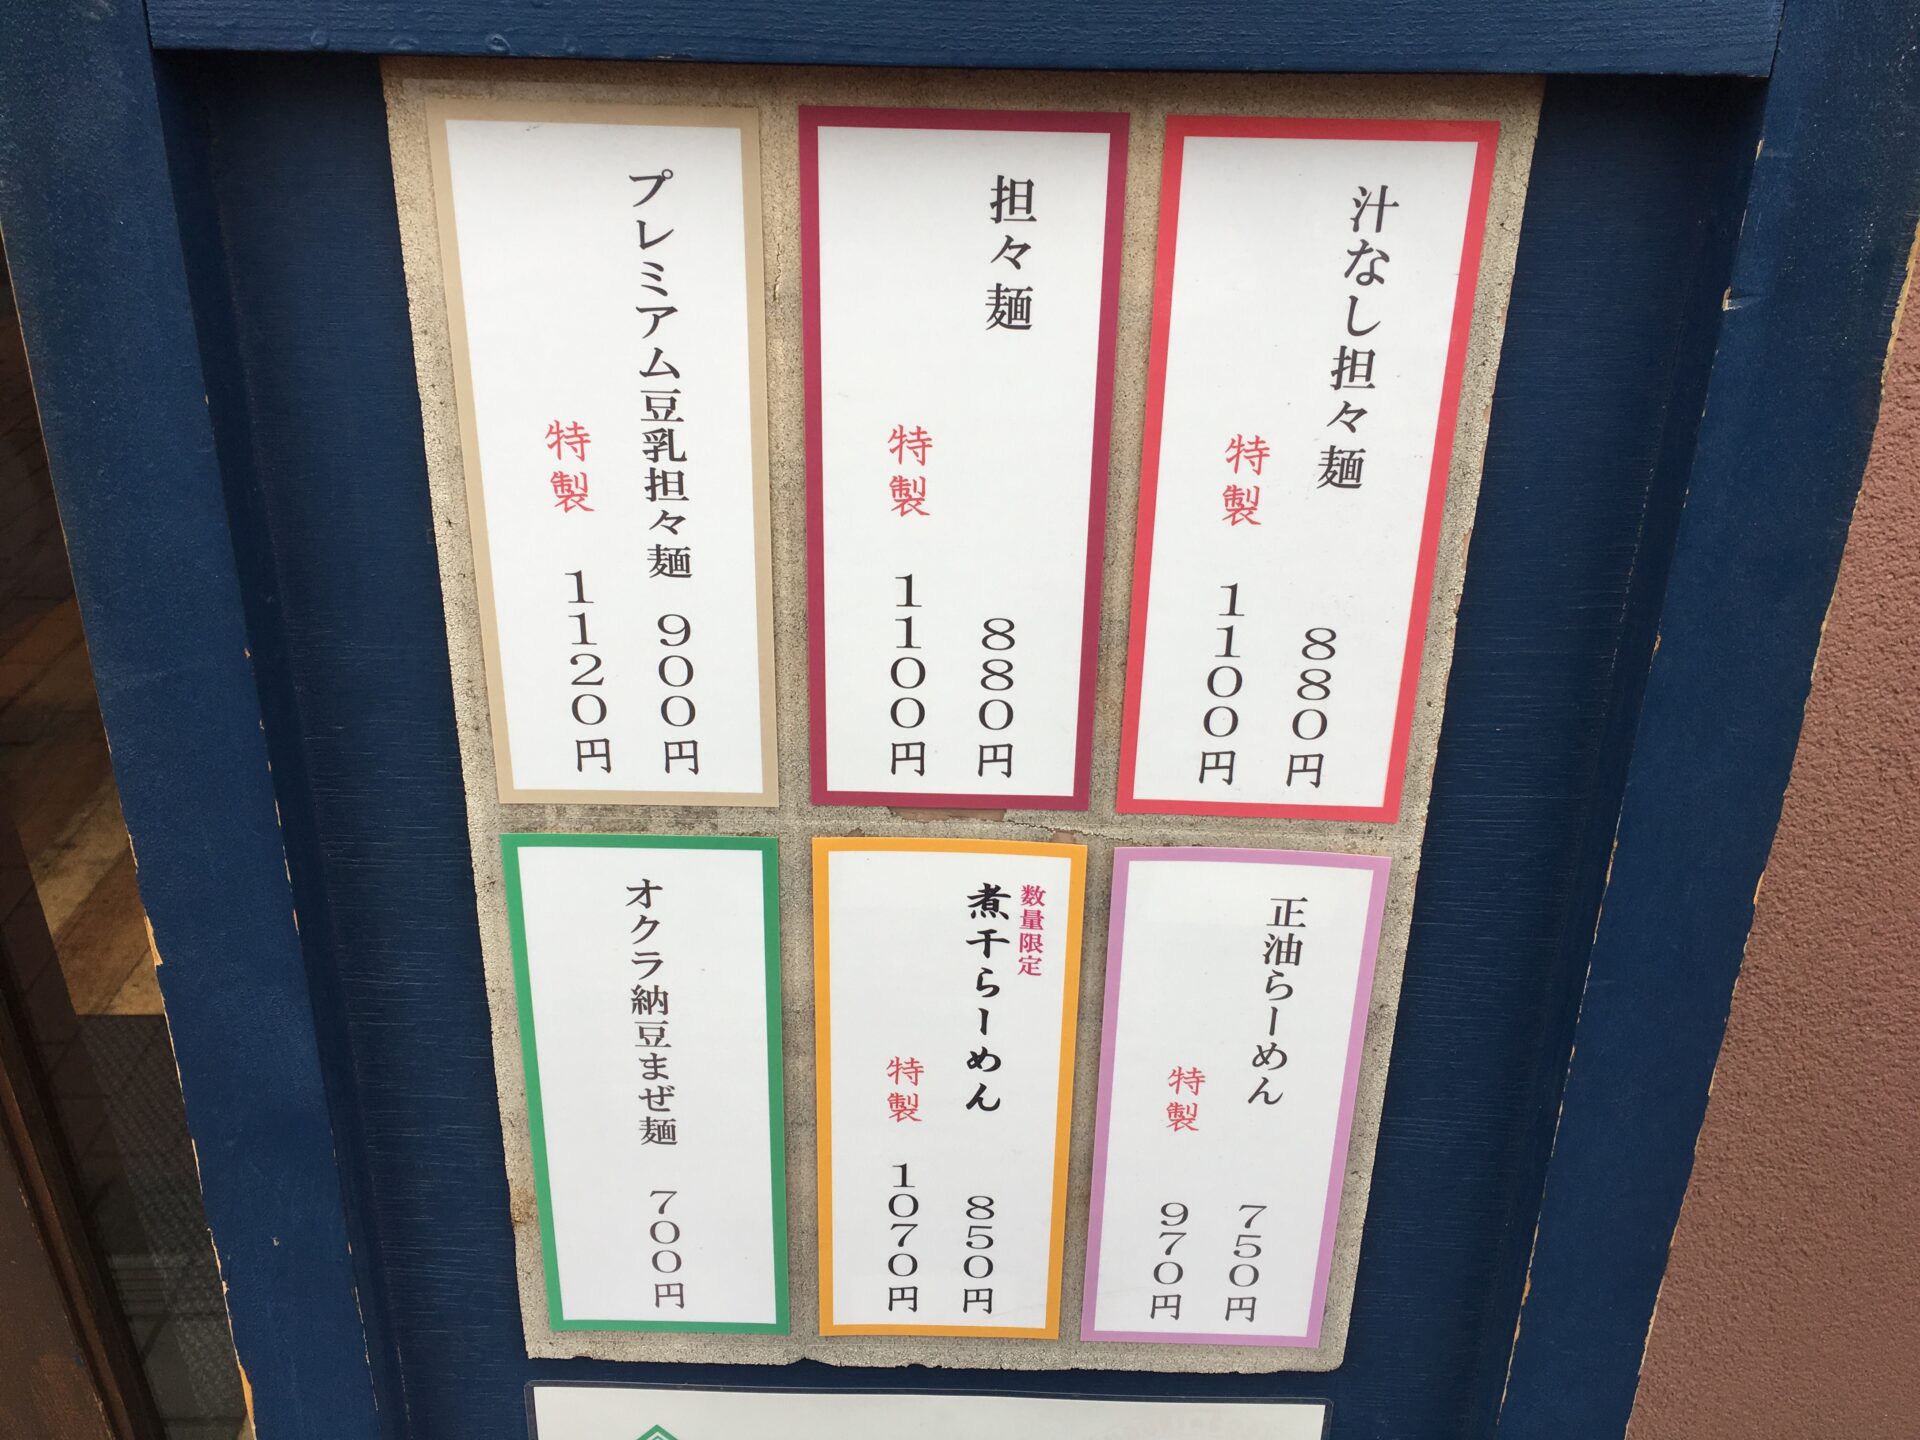 汁なし担々麺 880円
特製 1100円
担々麺 880円
特製 1100円
プレミアム豆乳担々麺 900円
特製 1120円
正油らーめん 750円
特製 970円
数量限定
煮干らーめん 850円
特製 1070円
オクラ納豆まぜ麺 700円